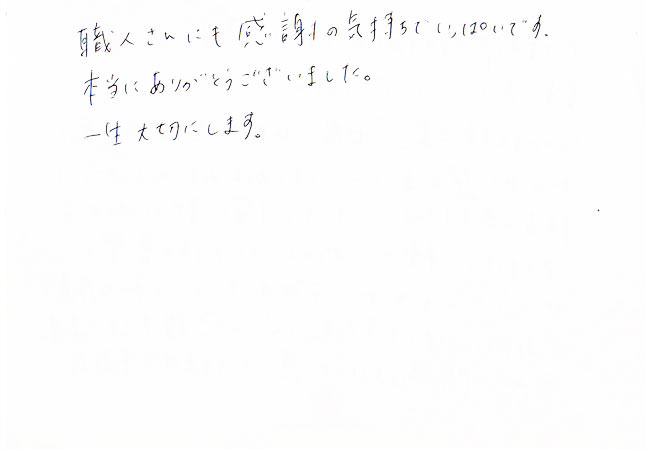 職人さんにも感謝の気持ちでいっぱいです。
本当にありがとうございました。
一生大切にします。